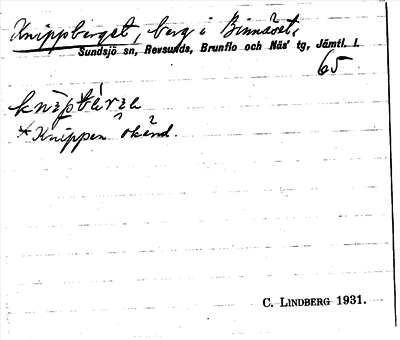 Knippberget, berg i Binnåset,
Sundsjö sn, Revsunds, Brunflo och Näs' tg, Jämtl. l.
65
* Knippen okänd.
C. LINDBERG 1931.